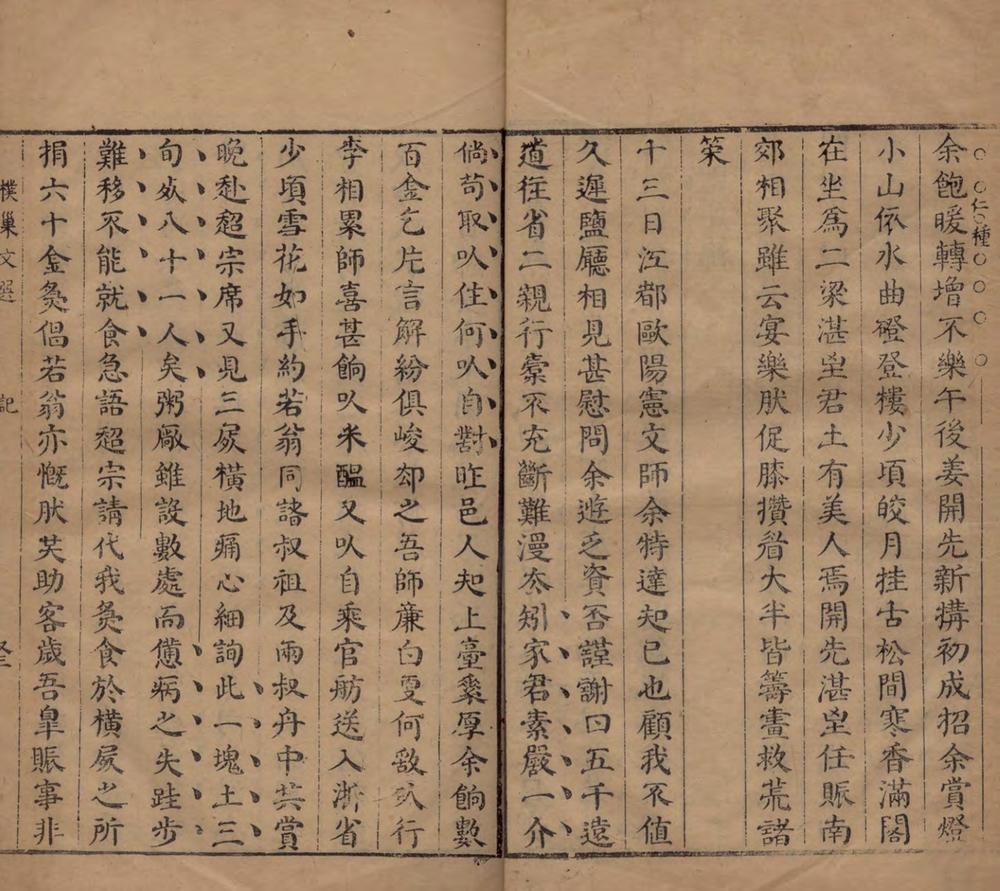 仁種
余飽暖轉增不樂午後姜開先新搆初成招余賞燈
小山依水曲磴登樓少頃皎月挂古松間寒香滿閣
在坐為二梁湛至君土有美人焉開先湛至任賑南
郊相聚雖云宴樂肰促膝攢眉大半皆籌畫救荒諸
策
十三日江都歐陽憲文師余特達知已也顧我不值
久遲鹽廳相見甚慰問余遊乏資否謹謝曰五千遠
道往省二親行橐不充斷難漫夵矧家君素嚴一介
倘苟取㕥往何㕥自對昨邑人知上臺槖厚余餉數
百金乞片言解紛俱峻却之吾師廉白㪅何敢㕥行
李相累師喜甚餉㕥米醞又㕥自乘官舫送入浙省
少頃雪花如手約若翁同諸叔祖及兩叔舟中共賞
晚赴超宗席又見三屍橫地痛心細詢此一塊土三
旬𡚁八十一人矣粥廠雖設數處而憊病之失跬步
難移不能就食急語超宗請代我𤇾食於橫屍之所
捐六十金𤇾倡若翁亦慨肰共助客歲吾皐賑事非
樸巢文選
記